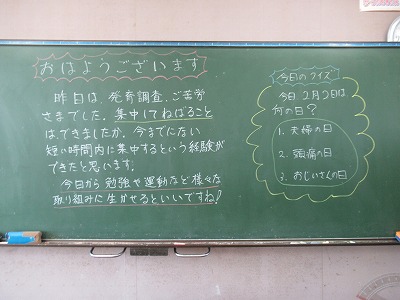 おはようございます
昨日は、発育調査、ご苦労
さまでした。集中してねばること
はできましたか。今までにない
短い時間内に集中するという経験が
できたと思います。
今日から勉強や運動など様々な
取り組みに生かせるといいですね!
今日のクイズ
今日2月2日は、
何の日?
1. 夫婦の日
2. 頭痛の日
3. おじいさんの日